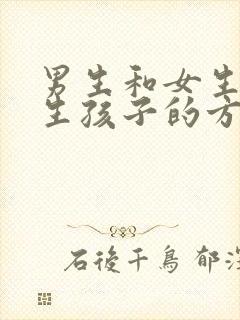 男生和女生
生孩子的方
石後千鳥 郁